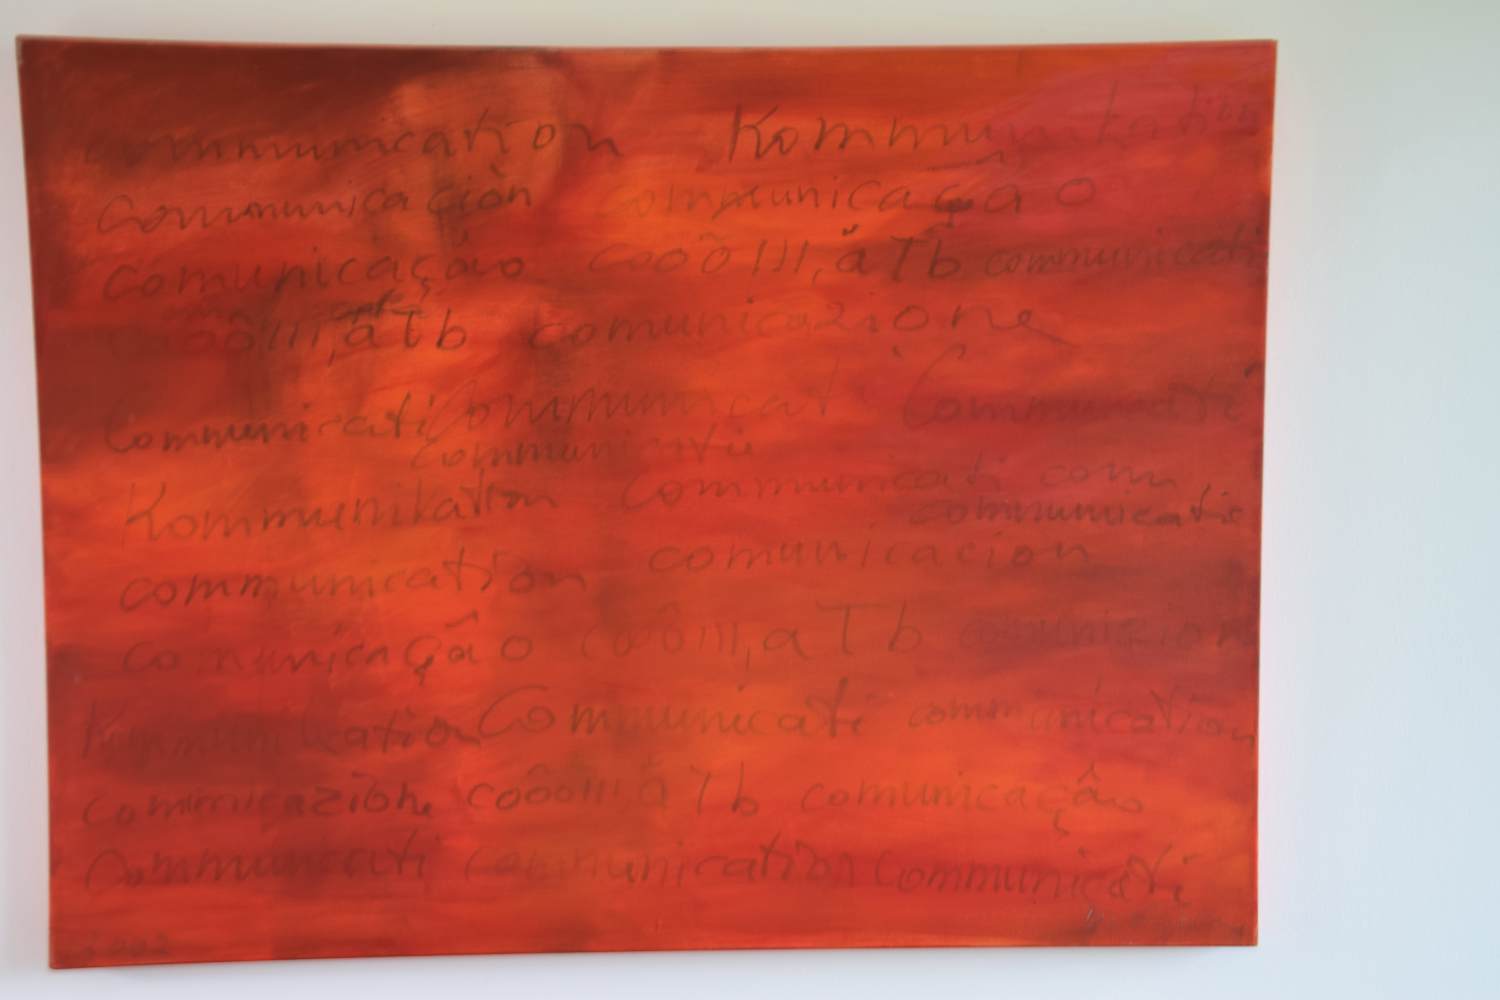 communication Kommunikation
Communicaciòn communicação
comunicação cooôIII,ăTb communicati
oôIII,ăTb comunicazione
Communicati Communicati Communicati
communicatie
Kommunikation Communicati com
communicatie
communication comunicacion
comunicaçâo cooôIII,aTb comunicazion
Kommunikation Communicati communication
comunicaziòne coôoIII,ăTb comunicaçâo
Communicati communication Communicati